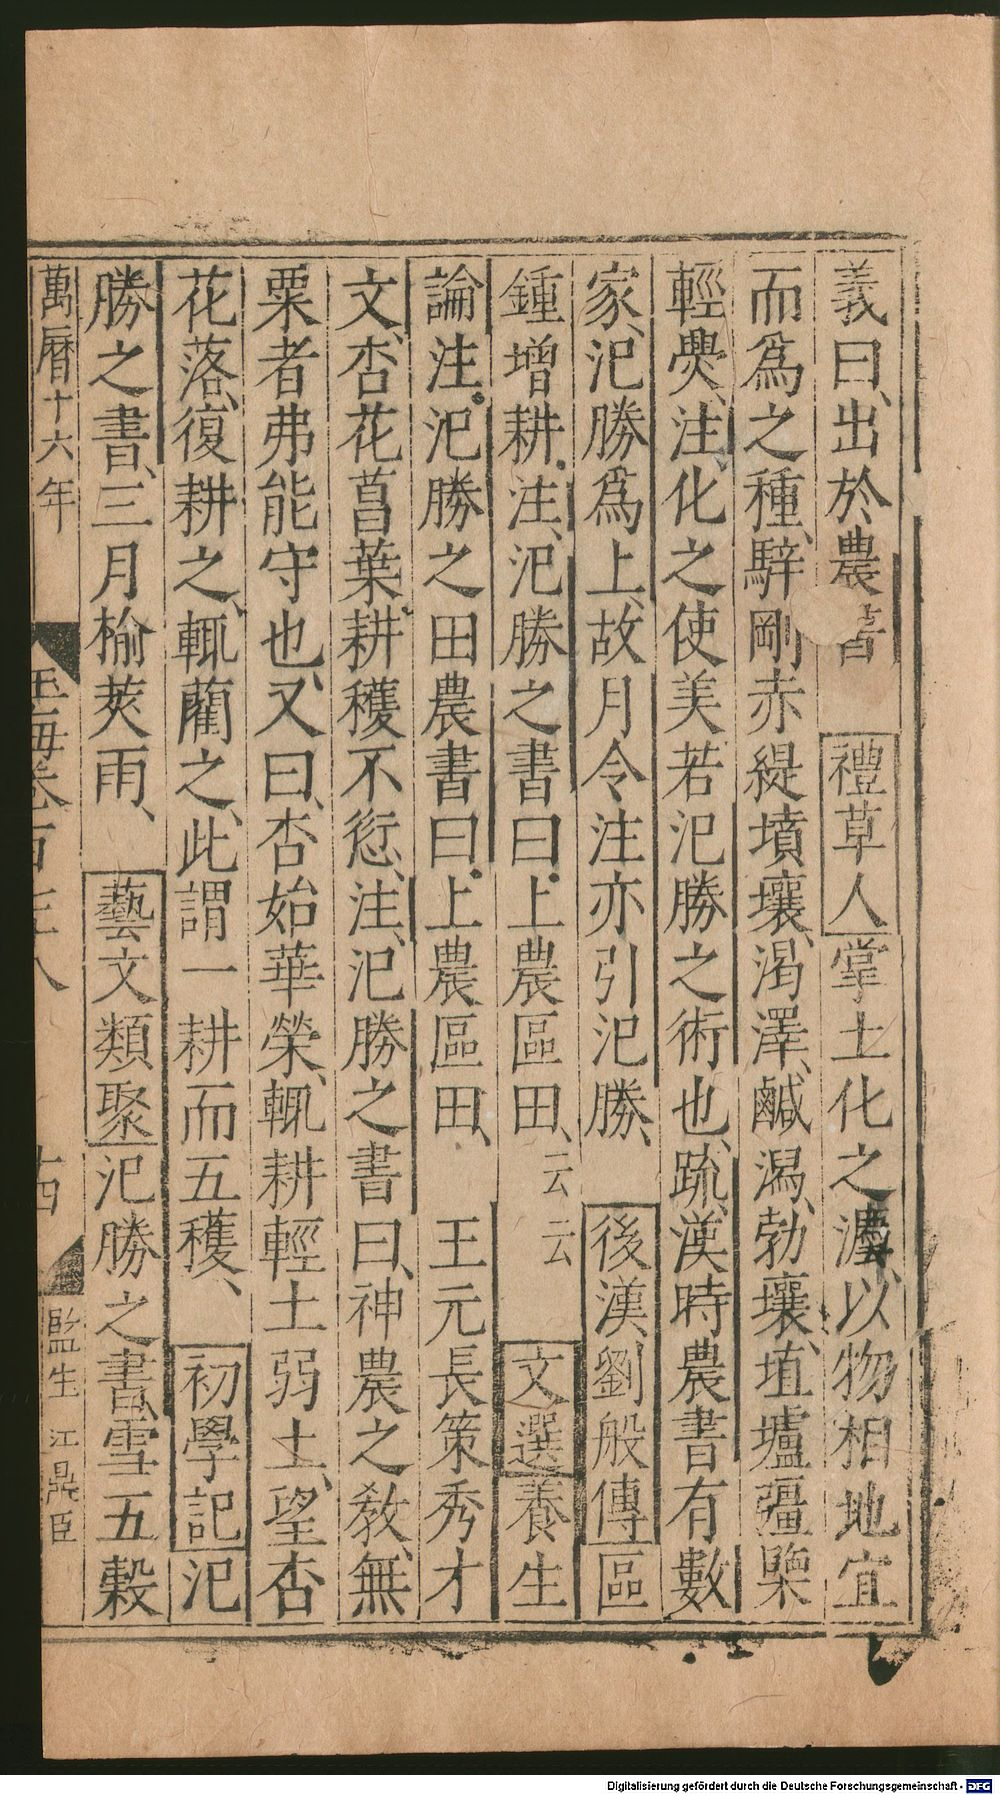 義曰出於農書　禮草人掌土化之灋以物相地宜
而爲之種騂剛赤緹墳壤渴澤鹹潟勃壤埴壚彊㯺
輕㶾注化之使美若氾勝之術也疏漢時農書有數
家氾勝爲上故月令注亦引氾勝　後漢劉般傳區
鍾增耕注氾勝之書曰上農區田云云　文選養生
論注氾勝之田農書曰上農區田　王元長策秀才
文杏花菖葉耕穫不愆注氾勝之書曰神農之敎無
粟者弗能守也又曰杏始華榮輒耕輕土弱土望杏
花落復耕之輒藺之此謂一耕而五穫　初學記氾
勝之書三月榆莢雨　藝文類聚氾勝之書雪五穀
萬曆十六年　玉海卷百七八　十四　監生江鼎臣
Digitalisierung gefördert durch die Deutsche Forschungsgemeinschaft - DFG